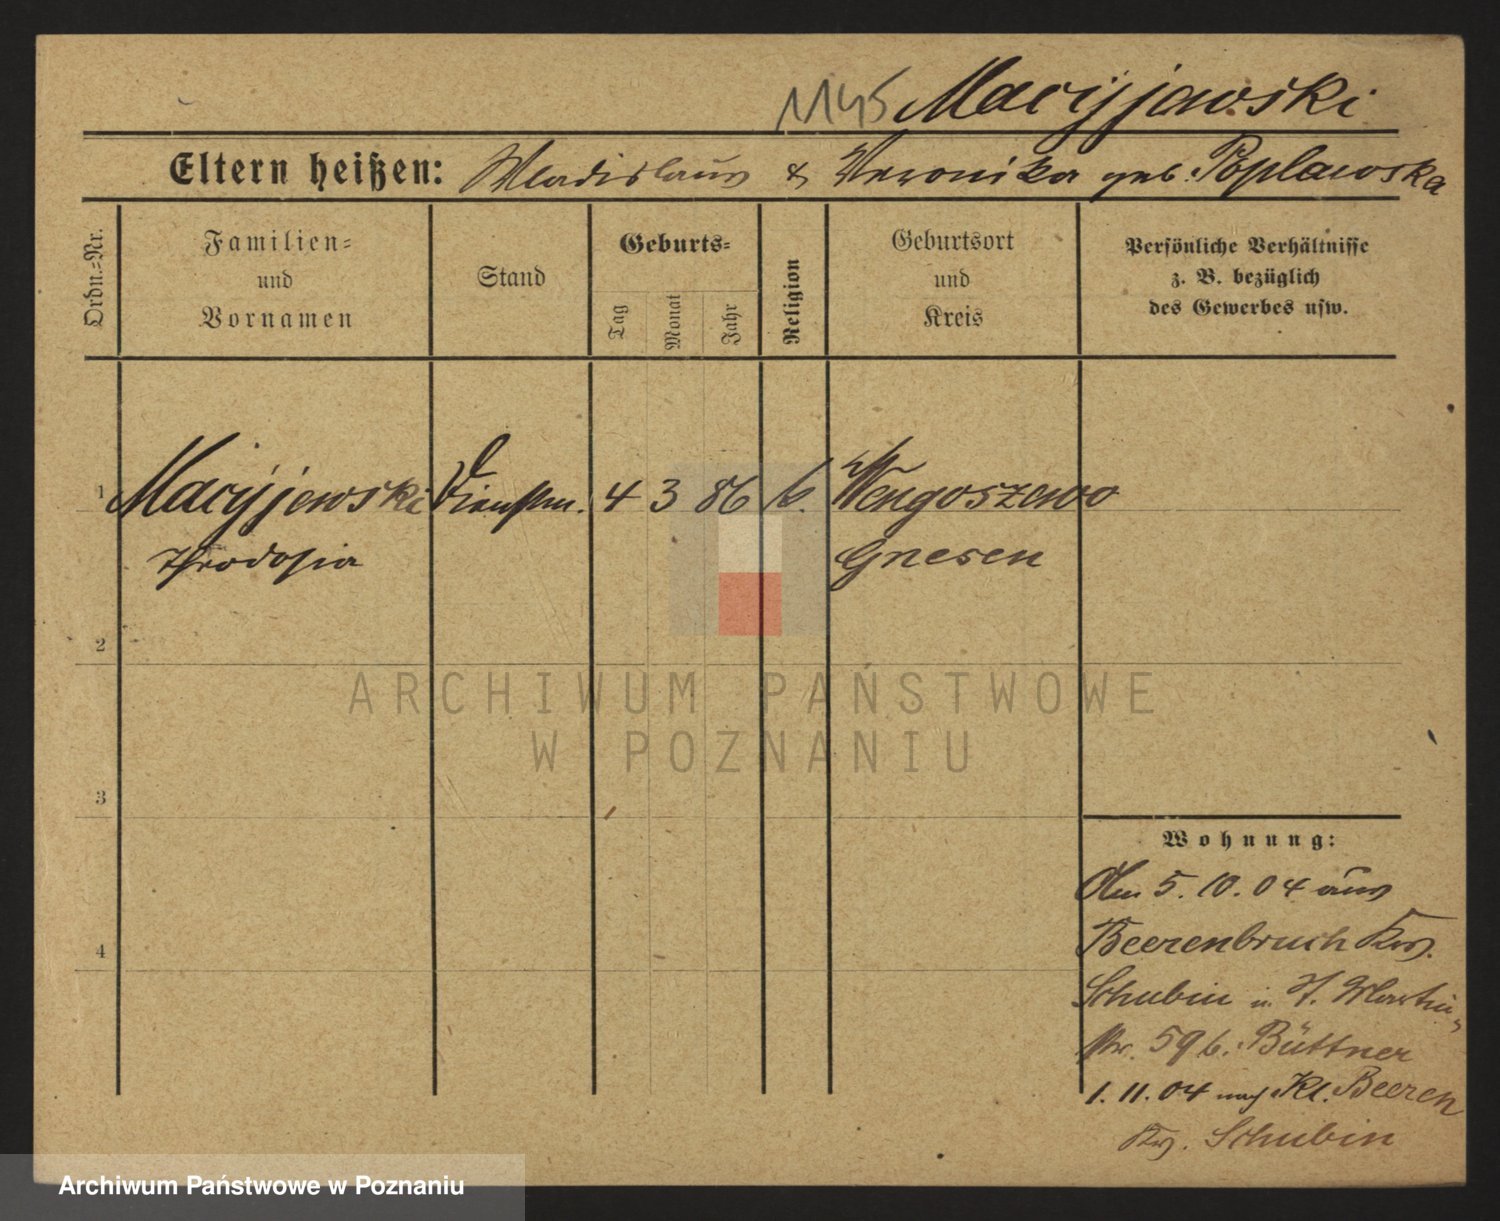 1145 Macijjewski
Eltern heißen: Wladislaus & Veronika geb. Poplawska
Ordn.=Nr.
Familien=
und
Vornamen
Stand
Geburts=
Tag
Monat
Jahr
Religion
Geburtsort
und
Kreis
Persönliche Verhältnisse
z. B. bezüglich
des Gewerbes usw.
1 Macijjewski Dienstm. 4 3 86 k. Wengoszewo
Theodosia Gnesen
2
ARCHIWUM PAŃSTWOWE
W POZNANIU
3
Wohnung:
Am 5. 10. 04 aus
Beerenbruch Krs.
4
Schubin n. St. Martin-
str. 59 b. Büttner
1. 11. 04 nach Kl. Beeren
Krs. Schubin
Archiwum Państwowe w Poznaniu